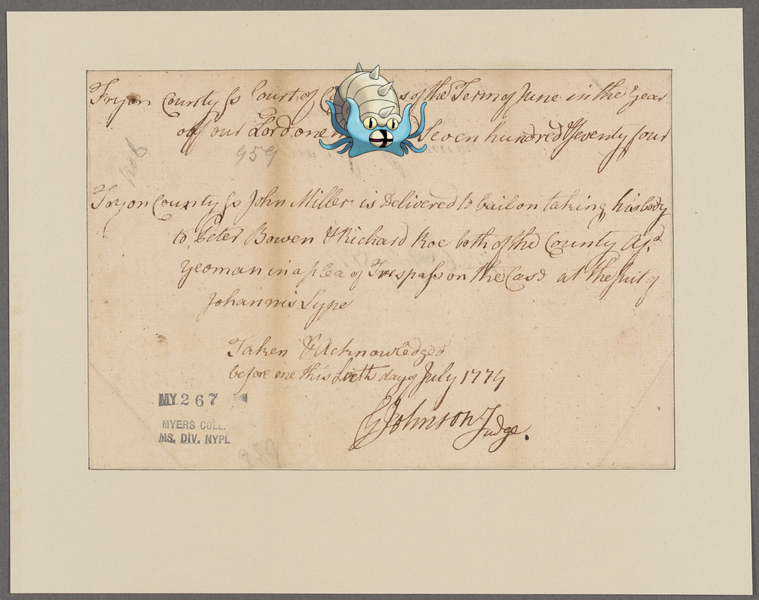 Tryon County ss Court of of the Term of June in the Year
of our Lord one Seven hundred & Seventy four
959
Tryon County ss John Miller is Delivered to bail on taking his body
to Peter Bowen & Richard Roe both of the County afsd
Yeoman in a plea of Trespass on the Case at the Suit of
Johannis Lype
Taken & Acknowledged
before me this day of July 1774
G Johnson Judge.
MY 267
MYERS COLL.
MS. DIV. NYPL